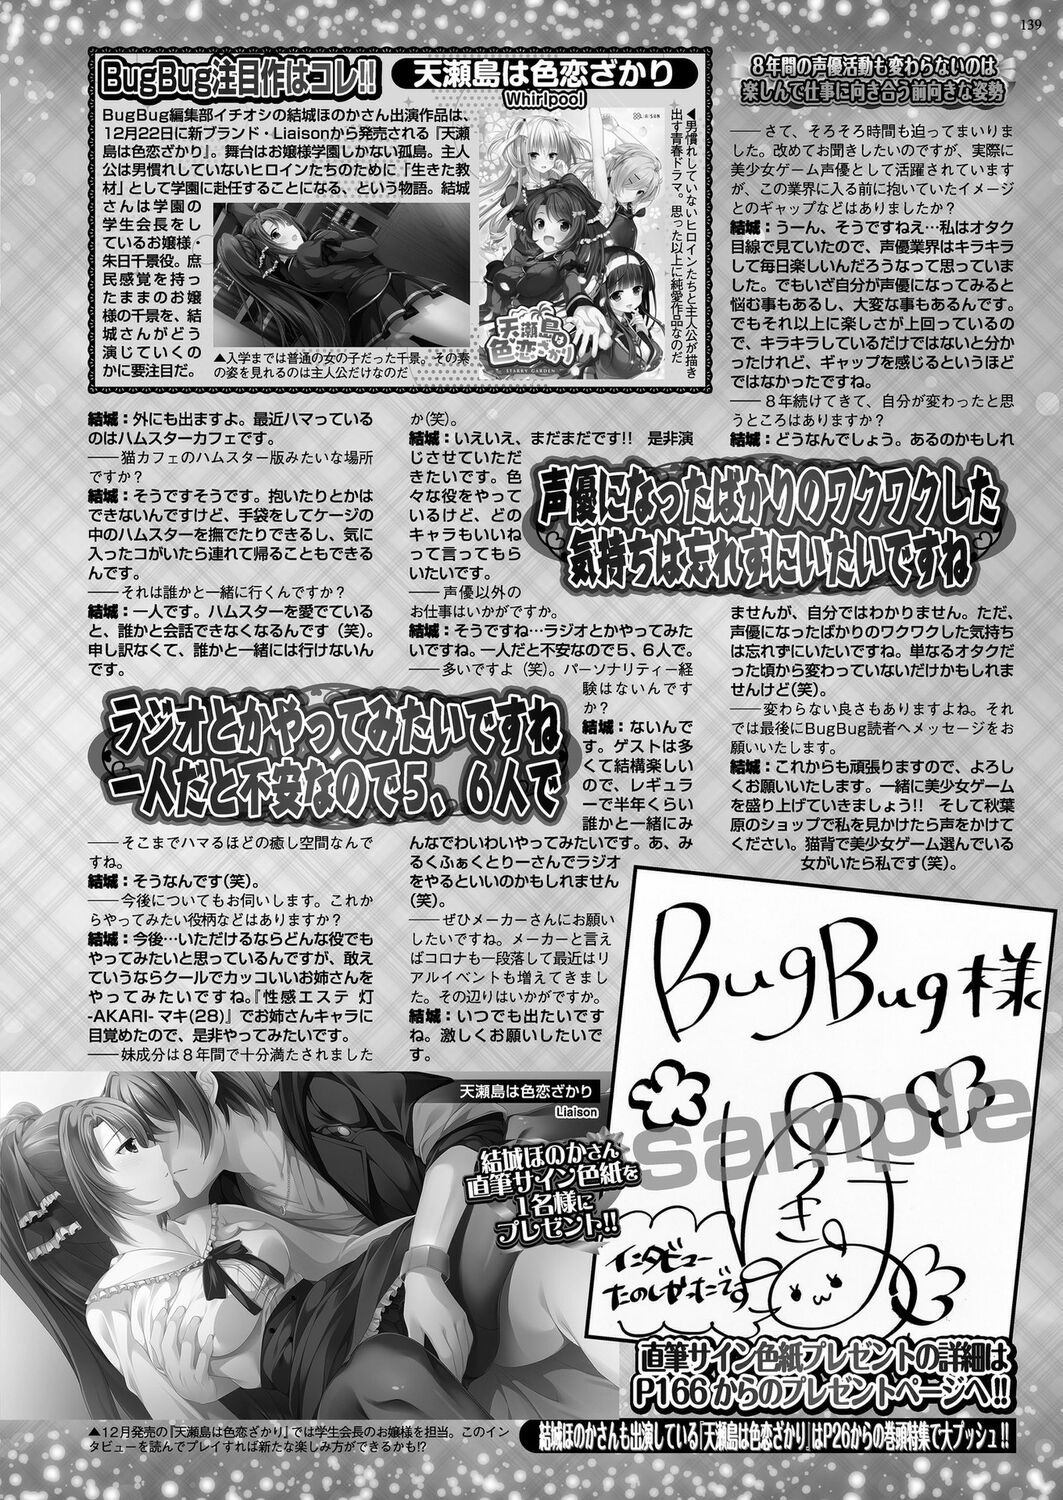 139
BugBug注目作はコレ!!
天瀬島は色恋ざかり
Whirlpool
BugBug編集部イチオシの結城ほのかさん出演作品は、
12月22日に新ブランド・Liaisonから発売される『天瀬
島は色恋ざかり』。舞台はお嬢様学園しかない孤島。主人
公は男慣れしていないヒロインたちのために「生きた教
材」として学園に赴任することになる、という物語。結城
さんは学園の
学生会長をし
ているお嬢様・
朱日千景役。庶
民感覚を持っ
たままのお嬢
様の千景を、結
城さんがどう
演じていくの
かに要注目だ。
▲入学までは普通の女の子だった千景。その素
の姿を見れるのは主人公だけなのだ
◀男慣れしていないヒロインたちと主人公が描き
出す青春ドラマ。思った以上に純愛作品なのだ
LIAISON
天瀬島は
色恋ざかり
STARRY GARDEN
結城：外にも出ますよ。最近ハマっている
のはハムスターカフェです。
――猫カフェのハムスター版みたいな場所
ですか？
結城：そうですそうです。抱いたりとかは
できないんですけど、手袋をしてケージの
中のハムスターを撫でたりできるし、気に
入ったコがいたら連れて帰ることもできる
んです。
――それは誰かと一緒に行くんですか？
結城：一人です。ハムスターを愛でている
と、誰かと会話できなくなるんです（笑）。
申し訳なくて、誰かと一緒には行けないん
です。
ラジオとかやってみたいですね
一人だと不安なので５、６人で
――そこまでハマるほどの癒し空間なんで
すね。
結城：そうなんです(笑)。
――今後についてもお伺いします。これか
らやってみたい役柄などはありますか？
結城：今後…いただけるならどんな役でも
やってみたいと思っているんですが、敢え
ていうならクールでカッコいいお姉さんを
やってみたいですね。『性感エステ 灯
-AKARI- マキ(28)』でお姉さんキャラに
目覚めたので、是非やってみたいです。
――妹成分は８年間で十分満たされました
か(笑)。
結城：いえいえ、まだまだです!!　是非演
じさせていただ
きたいです。色
々な役をやって
いるけど、どの
キャラもいいね
って言ってもら
いたいです。
――声優以外の
お仕事はいかがですか。
結城：そうですね…ラジオとかやってみた
いですね。一人だと不安なので５、６人で。
――多いですよ（笑）。パーソナリティー経
験はないんです
か？
結城：ないんで
す。ゲストは多
くて結構楽しい
ので、レギュラ
ーで半年くらい
誰かと一緒にみ
んなでわいわいやってみたいです。あ、み
るくふぁくとりーさんでラジオ
をやるといいのかもしれません
(笑)。
――ぜひメーカーさんにお願い
したいですね。メーカーと言え
ばコロナも一段落して最近はリ
アルイベントも増えてきまし
た。その辺りはいかがですか。
結城：いつでも出たいです
ね。激しくお願いしたいで
す。
８年間の声優活動も変わらないのは
楽しんで仕事に向き合う前向きな姿勢
――さて、そろそろ時間も迫ってまいりま
した。改めてお聞きしたいのですが、実際に
美少女ゲーム声優として活躍されています
が、この業界に入る前に抱いていたイメージ
とのギャップなどはありましたか？
結城：うーん、そうですねえ…私はオタク
目線で見ていたので、声優業界はキラキラ
して毎日楽しいんだろうなって思っていま
した。でもいざ自分が声優になってみると
悩む事もあるし、大変な事もあるんです。
でもそれ以上に楽しさが上回っているの
で、キラキラしているだけではないと分か
ったけれど、ギャップを感じるというほど
ではなかったですね。
――８年続けてきて、自分が変わったと思
うところはありますか？
結城：どうなんでしょう。あるのかもしれ
声優になったばかりのワクワクした
気持ちは忘れずにいたいですね
ませんが、自分ではわかりません。ただ、
声優になったばかりのワクワクした気持ち
は忘れずにいたいですね。単なるオタクだ
った頃から変わっていないだけかもしれま
せんけど(笑)。
――変わらない良さもありますよね。それ
では最後にBugBug読者へメッセージをお
願いいたします。
結城：これからも頑張りますので、よろし
くお願いします。一緒に美少女ゲーム
を盛り上げていきましょう!!　そして秋葉
原のショップで私を見かけたら声をかけて
ください。猫背で美少女ゲーム選んでいる
女がいたら私です(笑)。
天瀬島は色恋ざかり
Liaison
結城ほのかさん
直筆サイン色紙を
１名様に
プレゼント!!
BugBug様
sample
インタビュー
たのしかったです
直筆サイン色紙プレゼントの詳細は
P166からのプレゼントページへ!!
▲12月発売の『天瀬島は色恋ざかり』では学生会長のお嬢様を担当。このイン
タビューを読んでプレイすれば新たな楽しみ方ができるかも!?
結城ほのかさんも出演している『天瀬島は色恋ざかり』はP26からの巻頭特集で大プッシュ!!